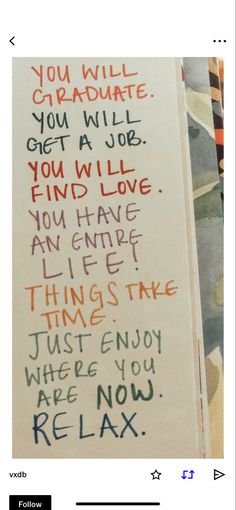 YOU WILL
GRADUATE.
YOU WILL
GET A JOB.
YOU WILL
FIND LOVE.
YOU HAVE
AN ENTIRE
LIFE!
THINGS TAKE
TIME.
JUST ENJOY
WHERE YOU
ARE NOW.
RELAX.
vxdb
Follow